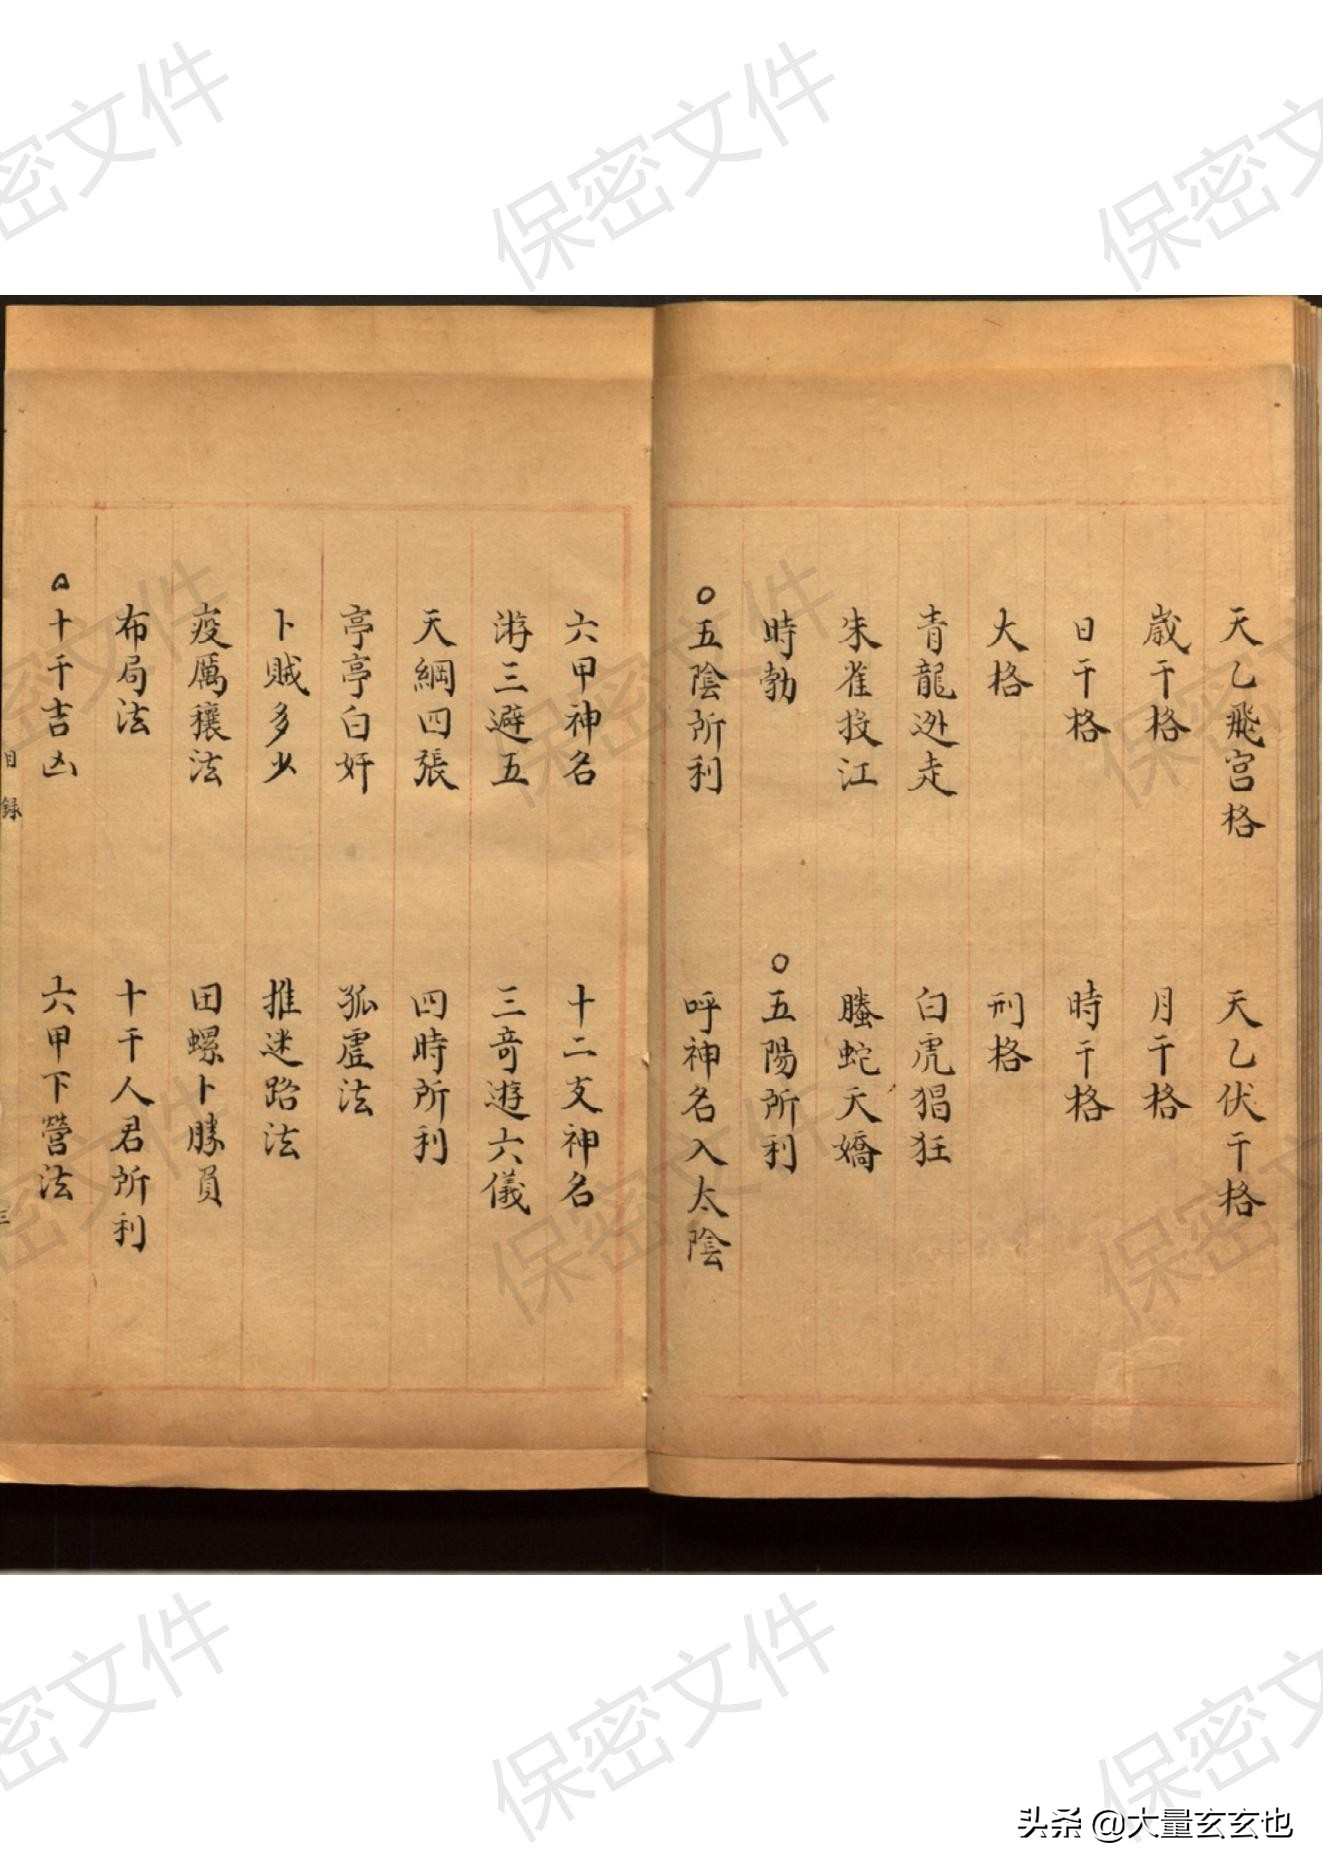 天乙飛宫格　天乙伏干格
歲干格　月干格
日干格　時干格
大格　刑格
青龍迯走　白虎猖狂
朱雀投江　螣蛇夭嬌
時勃　○五陽所利
○五陰所利　呼神名入太陰
六甲神名　十二支神名
游三避五　三竒遊六儀
天綱四張　四時所利
亭亭白奸　孤虚法
卜賊多少　推迷路法
疫厲穰法　田螺卜勝負
布局法　十干人君所利
○十干吉凶　六甲下營法
目録
三
保密文件
保密文件
保密文件
保密文件
保密文件
保密文件
保密文件
保密文件
保密文件
保密文件
保密文件
保密文件
头条 @大量玄玄也